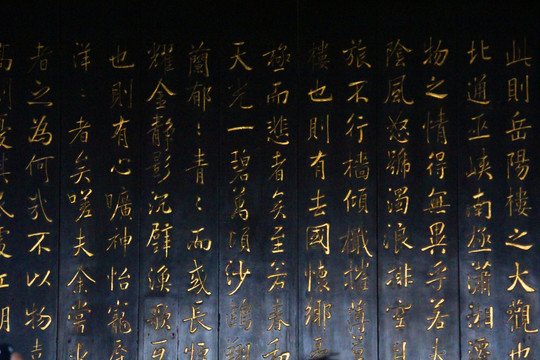 此則岳陽樓之大觀也
北通巫峽南極瀟湘
物之情得無異乎若夫
陰風怒號濁浪排空
旅不行檣傾檝摧薄
樓也則有去國懷鄉
極而悲者矣至若春和
天光一碧萬頃沙鷗翔
蘭郁：青：而或長
耀金靜影沉璧漁歌互
也則有心曠神怡寵辱
洋：者矣嗟夫余嘗求
者之為何哉不以物喜